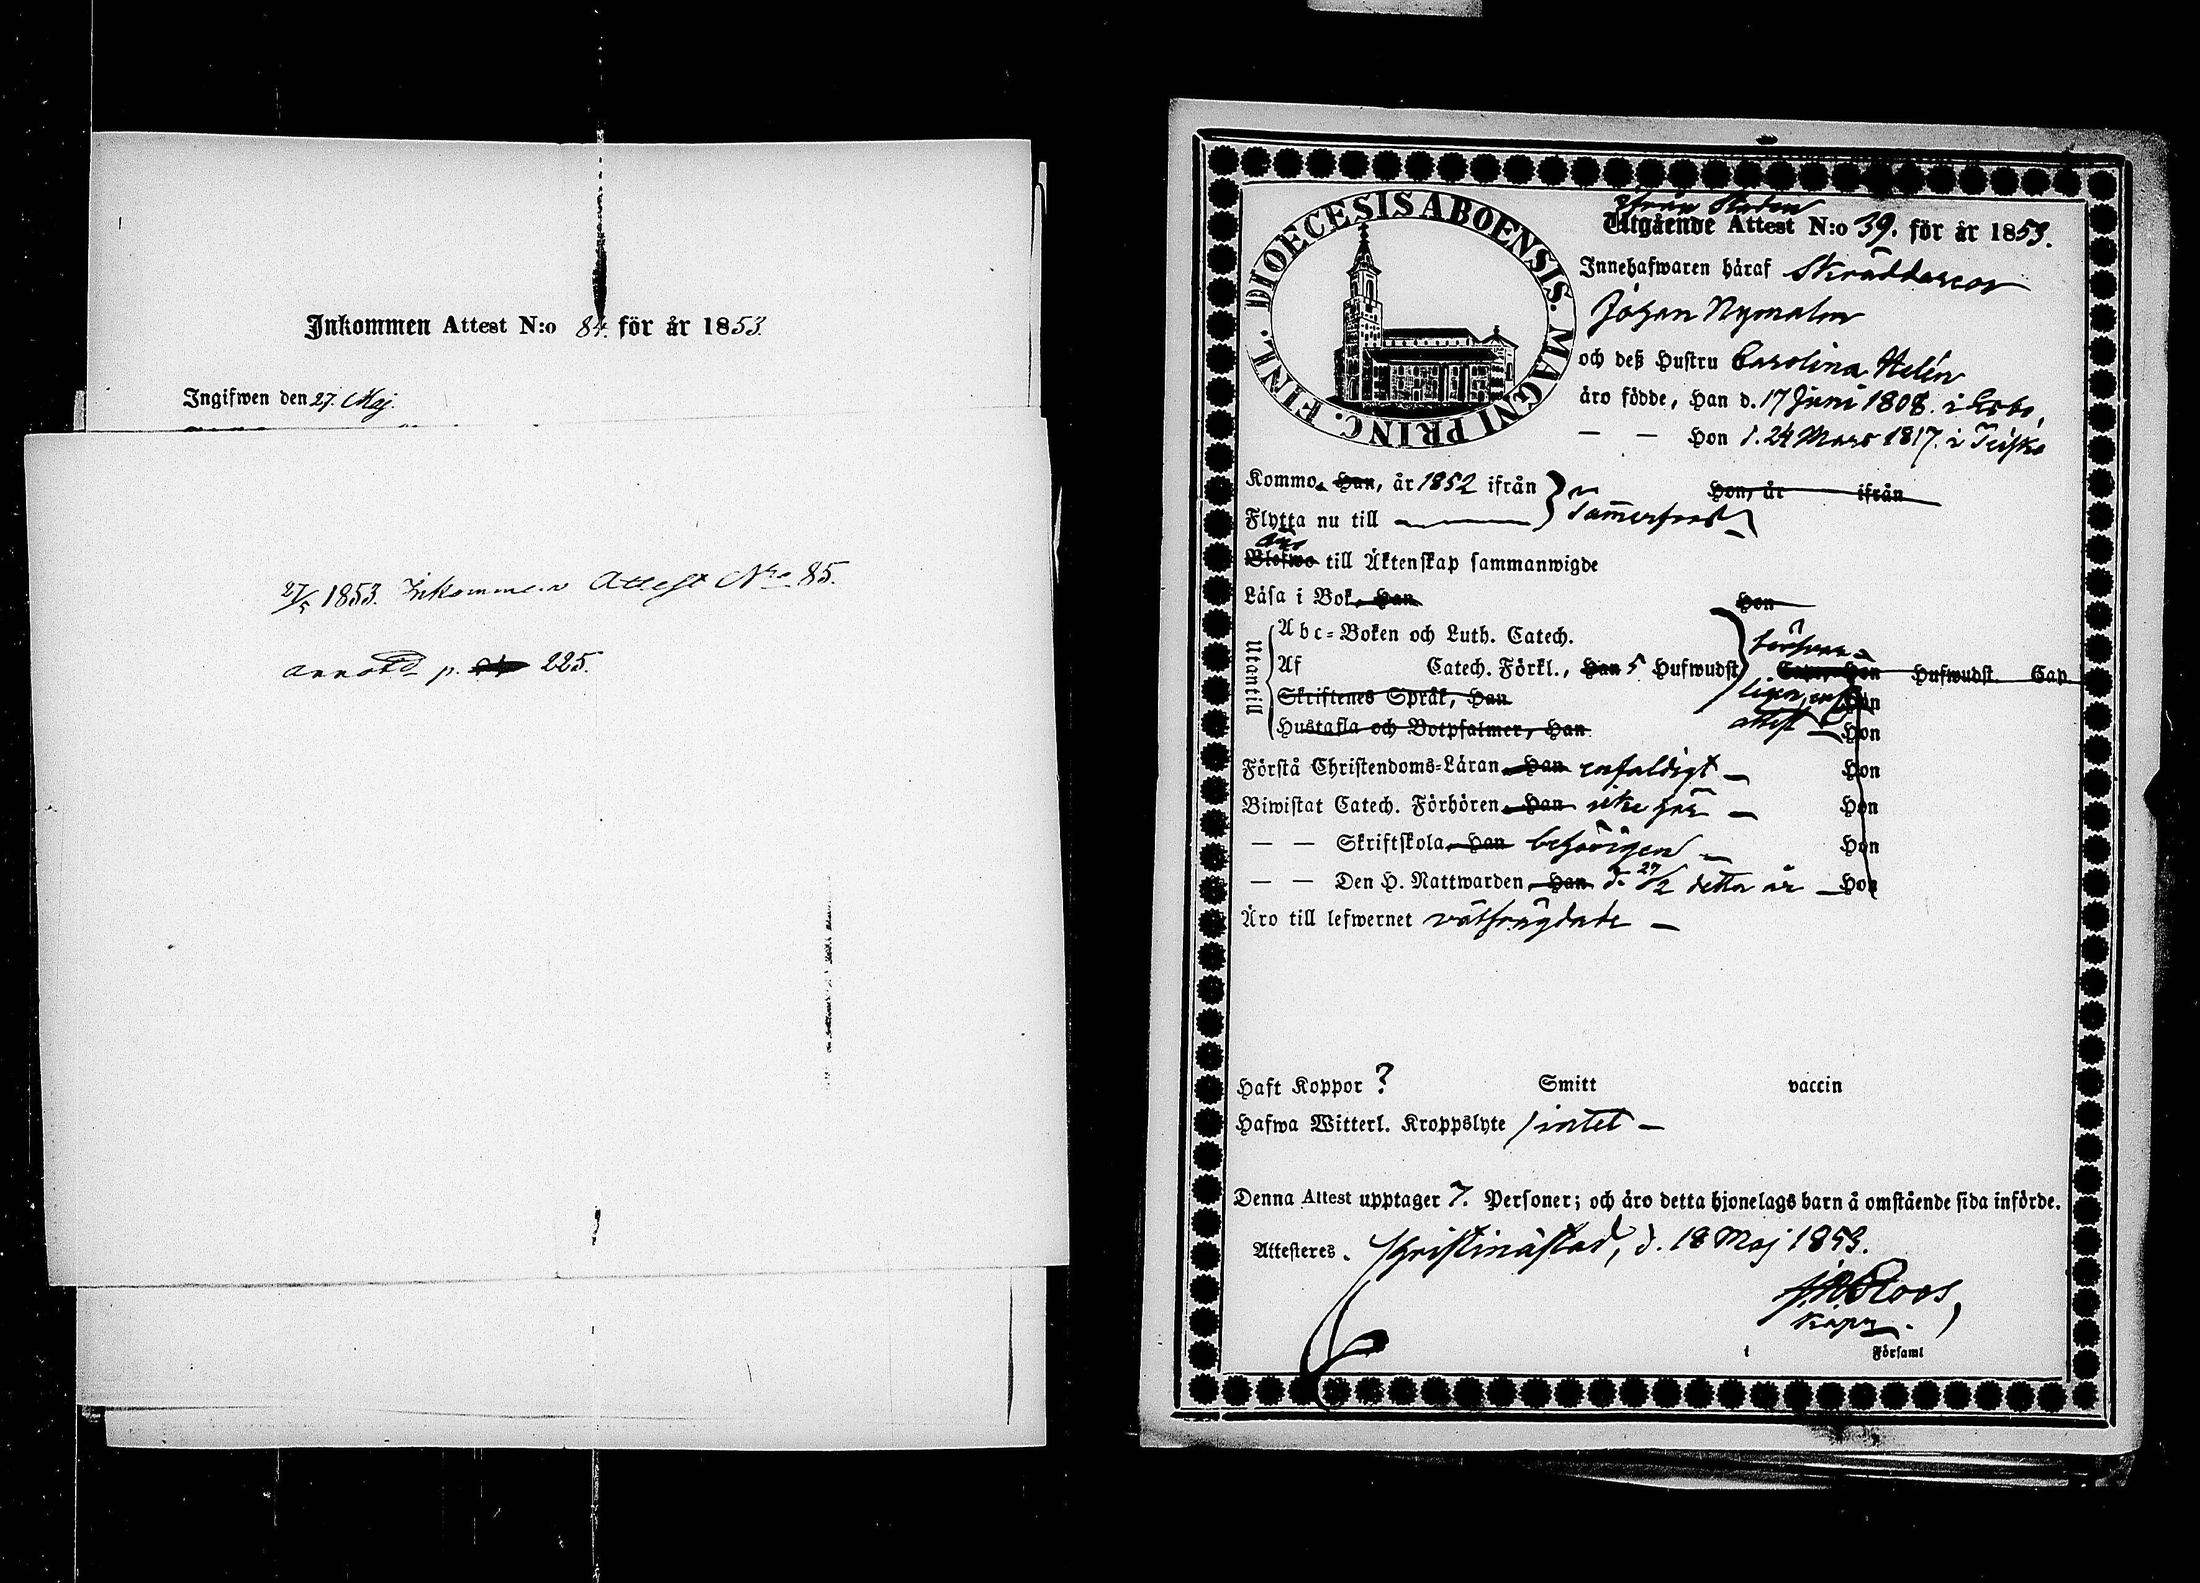 Inkommen Attest N:o 84. för år 1853.
Ingifwen den 27. Maj.
27/5 1853. Inkommen Attest Nro 85.
annoterd p. 225.
DIOECESIS ABOENSIS. MAGNI PRINC. FINL.
ifrån Staden
Utgående Attest N:o 39. för år 1853.
Innehafwaren häraf Skräddaren
Johan Nymalm
och deß Hustru Carolina Helén
äro födde, Han d. 17 Juni 1808. i
— — Hon d. 24 Mars 1817. i Teisko
Kommo, Han, år 1852 ifrån Hon, år ifrån
Flytta nu till Tammerfors
äro
Blefwo till Äktenskap sammanwigde
Läsa i Bok, Han Hon
Utantill
Abc-Boken och Luth. Catech.
Af Catech. Förkl., Han 5 Hufwudst. Cap., Hon Hufwudst. Cap.
Skriftenes Språk, Han Hon
Hustafla och Botpsalmer, Han attest Hon
Förstå Christendoms-Läran, Han enfaldigt — Hon
Biwistat Catech. Förhören, Han icke här — Hon
— — Skriftskola, Han behörigen — Hon
— — Den H. Nattwarden, Han d. 27/2 detta år — Hon
Äro till lefwernet wälfrägdade —
Haft Koppor ? Smitt vaccin
Hafwa Witterl. Kroppslyte intet —
Denna Attest upptager 7. Personer; och äro detta hjonelags barn å omstående sida införde.
Attesteres. Christinæstad, d. 18 Maj 1853.
Roos,
Kapn.
i Församl